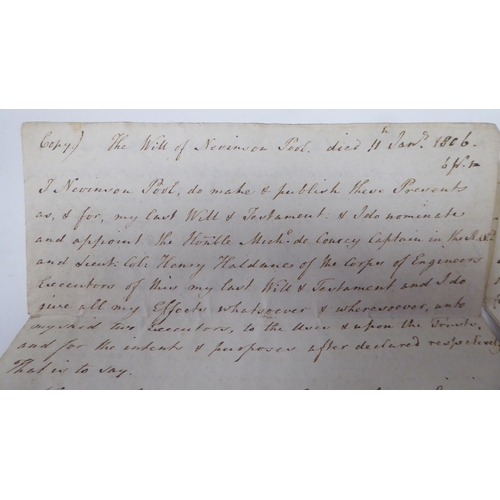 Copy) The Will of Nevinson Pool. died 11th Jany. 1806.
I Nevinson Pool, do make & publish these Presents
as, & for, my last Will & Testament: & I do nominate
and appoint the Honble Michl. de Courcy Captain in the R.N.
and Lieut: Col: Henry Haldane of the Corps of Engineers
Executors of this my last Will & Testament and I do
give all my Effects whatsoever & wheresoever, unto
my said two Executors, to the Uses & upon the Trusts,
and for the intents & purposes after declared respectively
That is to say.